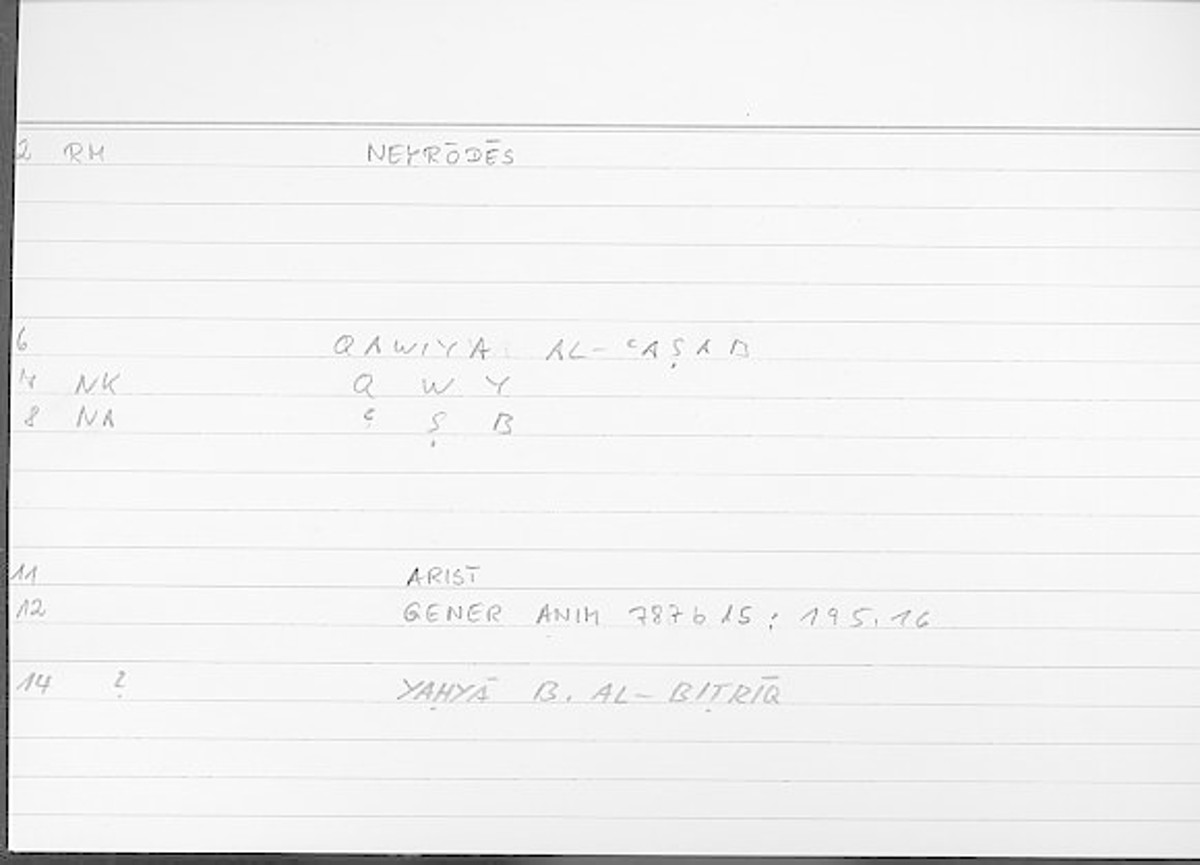 2 RM NEYRŌDĒS
6 QAWIYA AL-ʿAṢAB
7 NK Q W Y
8 NA ʿ Ṣ B
11 ARIST
12 GENER ANIM 787b15; 195.16
14 ? YAḤYĀ B. AL-BIṬRĪQ